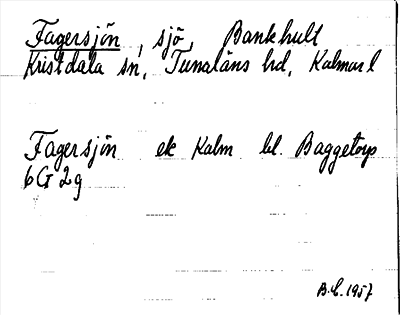 Fagersjön, sjö, Bankhult
Kristdala sn, Tunaläns hd, Kalmar l
Fagersjön ek Kalm bl. Baggetorp
6G 2g
B.E. 1957